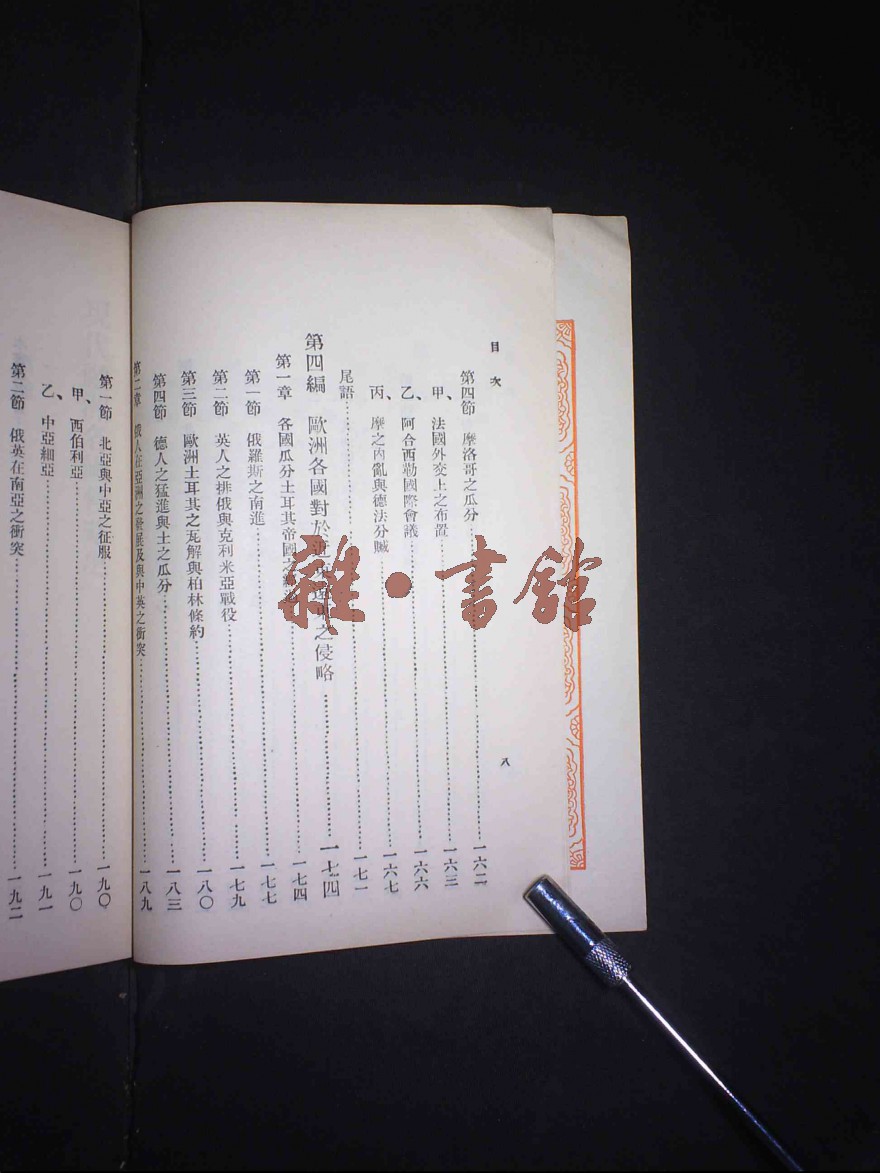 目次
八
第四節 摩洛哥之瓜分 一六二
甲、法國外交上之布置 一六三
乙、阿合西勒國際會議 一六六
丙、摩之內亂與德法分贓 一六七
尾語 一七一
第四編 歐洲各國對於近東遠東之侵略 一七四
第一章 各國瓜分土耳其帝國之 一七四
第一節 俄羅斯之南進 一七七
第二節 英人之排俄與克利米亞戰役 一七九
第三節 歐洲土耳其之瓦解與柏林條約 一八〇
第四節 德人之猛進與土之瓜分 一八三
第二章 俄人在亞洲之發展及與中英之衝突 一八九
第一節 北亞與中亞之征服 一九〇
甲、西伯利亞 一九〇
乙、中亞細亞 一九一
第二節 俄英在南亞之衝突 一九二
雜·書館